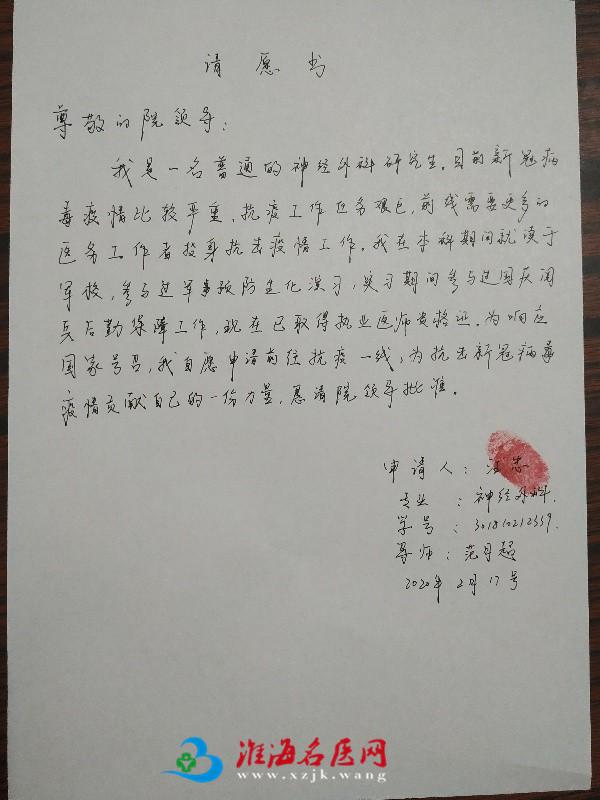 请愿书
尊敬的院领导：
我是一名普通的神经外科研究生。目前新冠病
毒疫情比较严重，抗疫工作任务艰巨，前线需要更多的
医务工作者投身抗击疫情工作。我在本科期间就读于
军校，参与过军事预防生化演习，实习期间参与过国庆阅
兵后勤保障工作，现在已取得执业医师资格证。为响应
国家号召，我自愿申请前往抗疫一线，为抗击新冠病毒
疫情贡献自己的一份力量，恳请院领导批准。
申请人：汪忠
专业：神经外科.
学号：301810212359.
导师：范月超
2020年2月17号
淮海名医网
www.xzjk.wang